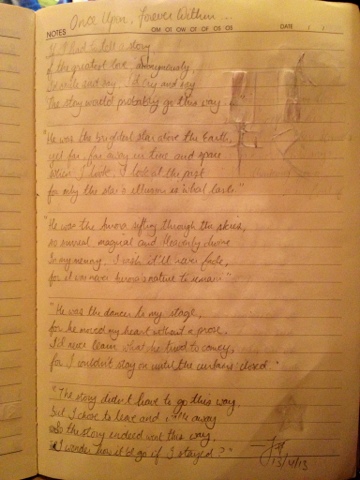 Once Upon, Forever Within...
NOTES
OM OT OW OT OF OS OS
DATE / /
If I had to tell a story
of the greatest love, anonymously
I'd smile and say, I'd cry and say
The story would probably go this way.
"He was the brightest star above the Earth,
yet far, far away in time and space
When I look, I look at the past
for only the star's illusion is what lasts."
"He was the aurora sifting through the skies,
so surreal, magical and Heavenly divine
In my memory, I wish it'll never fade,
for it was never aurora's nature to remain."
"He was the dancer to my stage,
for he moved my heart without a prose,
I'd never learn what he tried to convey,
for I wouldn't stay on until the curtains closed."
"The story didn't have to go this way.
But I chose to leave and away
the story ended went this way,
I wonder how it'd go if I stayed?"
13/4/13